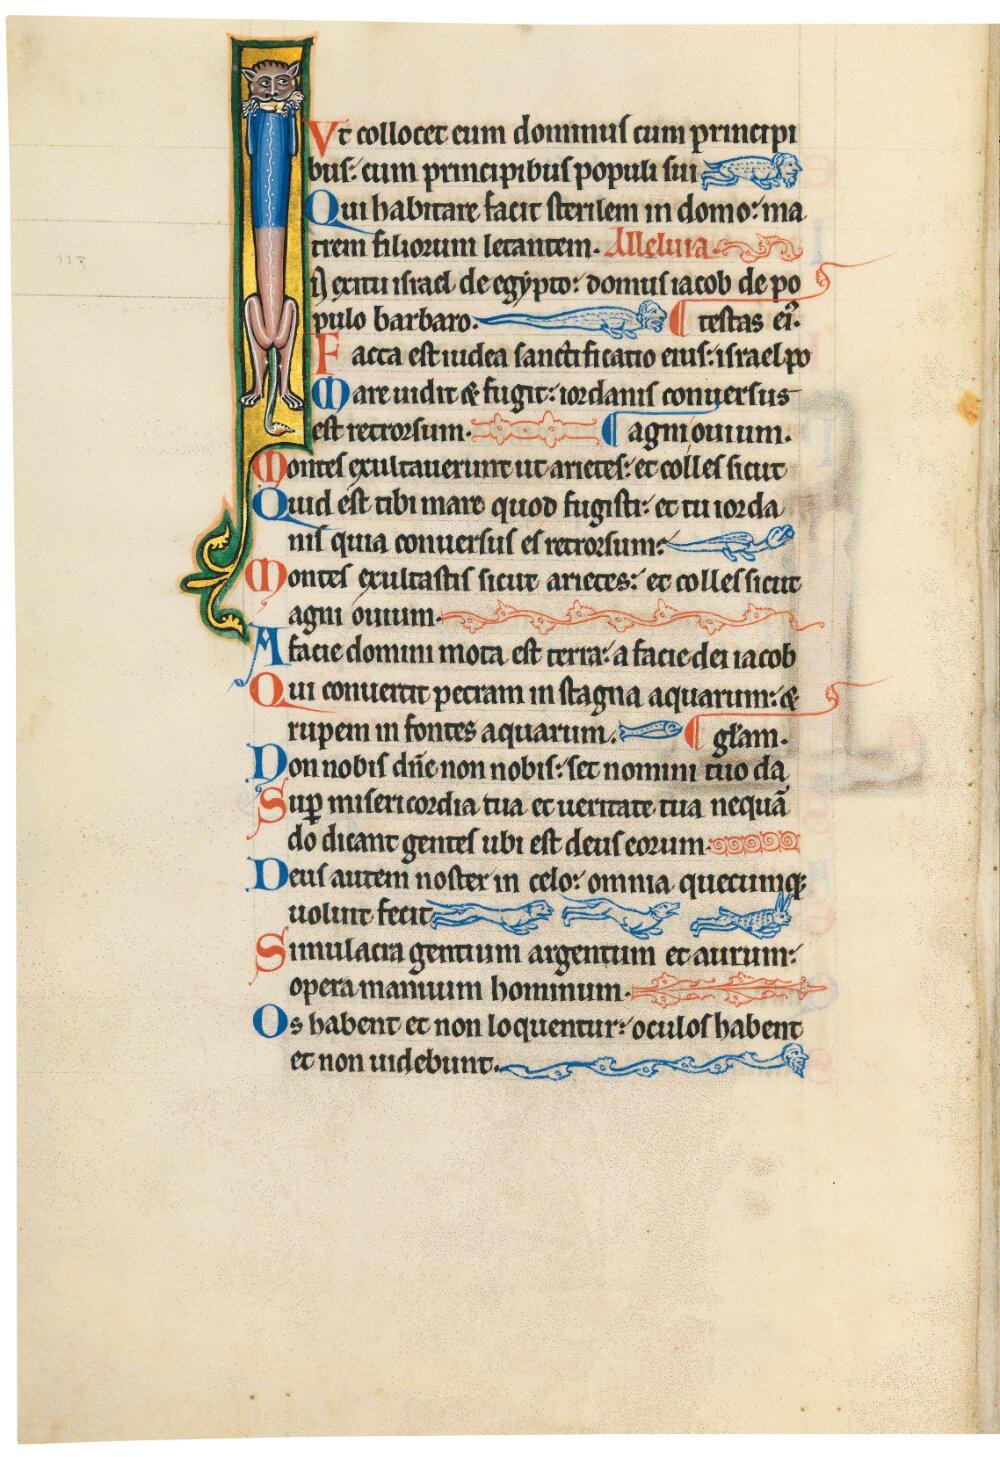 Vt collocet eum dominus cum principi
bus: cum principibus populi sui
Qui habitare facit sterilem in domo: ma
trem filiorum letantem. Alleluia.
In exitu israel de egypto: domus iacob de po
pulo barbaro. testas ei⁹.
Facta est iudea sanctificatio eius: israel po
Mare uidit & fugit: iordanis conuersus
est retrorsum. agni ouium.
Montes exultauerunt ut arietes: et colles sicut
Quid est tibi mare quod fugisti: et tu iorda
nis quia conuersus es retrorsum:
Montes exultastis sicut arietes: et colles sicut
agni ouium.
A facie domini mota est terra: a facie dei iacob
Qui conuertit petram in stagna aquarum: &
rupem in fontes aquarum. gl̄am.
Non nobis dn̄e non nobis: set nomini tuo da
Sup̱ misericordia tua et ueritate tua nequā
do dicant gentes ubi est deus eorum.
Deus autem noster in celo: omnia quecumqꝫ
uoluit fecit
Simulacra gentium argentum et aurum:
opera manuum hominum.
Os habent et non loquentur: oculos habent
et non uidebunt.